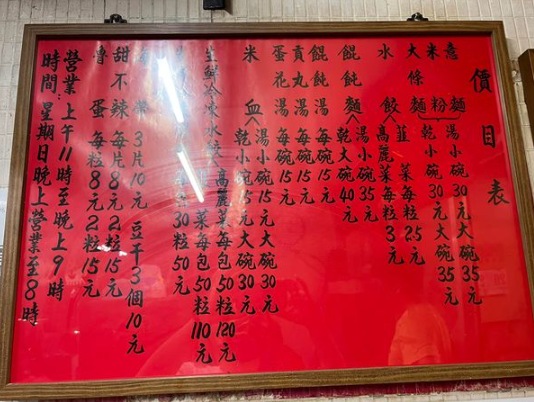 價目表
意麵 湯小碗30元大碗35元
米粉 乾小碗30元大碗35元
大條麵
水餃 韮菜每粒2.5元
高麗菜每粒3元
餛飩麵 湯小碗35元
乾大碗40元
餛飩湯每碗15元
貢丸湯每碗15元
蛋花湯每碗15元
米血 湯小碗15元大碗30元
乾小碗15元大碗30元
生鮮冷凍水餃 高麗菜每包50粒120元
菜每包50粒110元
30粒50元
海帶3片10元 豆干3個10元
甜不辣每片8元2片15元
魯蛋每粒8元2粒15元
營業時間:上午11時至晚上9時
星期日晚上營業至8時